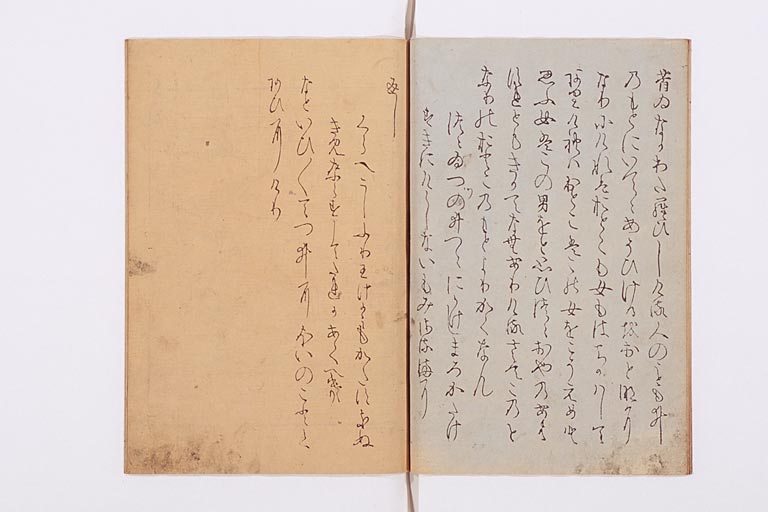 昔ゐなかわたらひしける人のこども井
のもとにいてゝあそひけるをおとなに
なりにけれはおとこも女もはちかはして
ありけれはおとこはこの女をこそえめと
思ふ女はこの男をと思ひつゝおやのあはす
れともきかてなむありけるさてこのと
なりのおとこのもとよりかくなん
つゝゐつのゐつゝにかけしまろかたけ
すきにけらしないもみさるまに
返し
くらへこしふりわけかみもかたすきぬ
きみならすしてたれかあくへき
なといひ〱てつ井にほいのことく
あひにけり